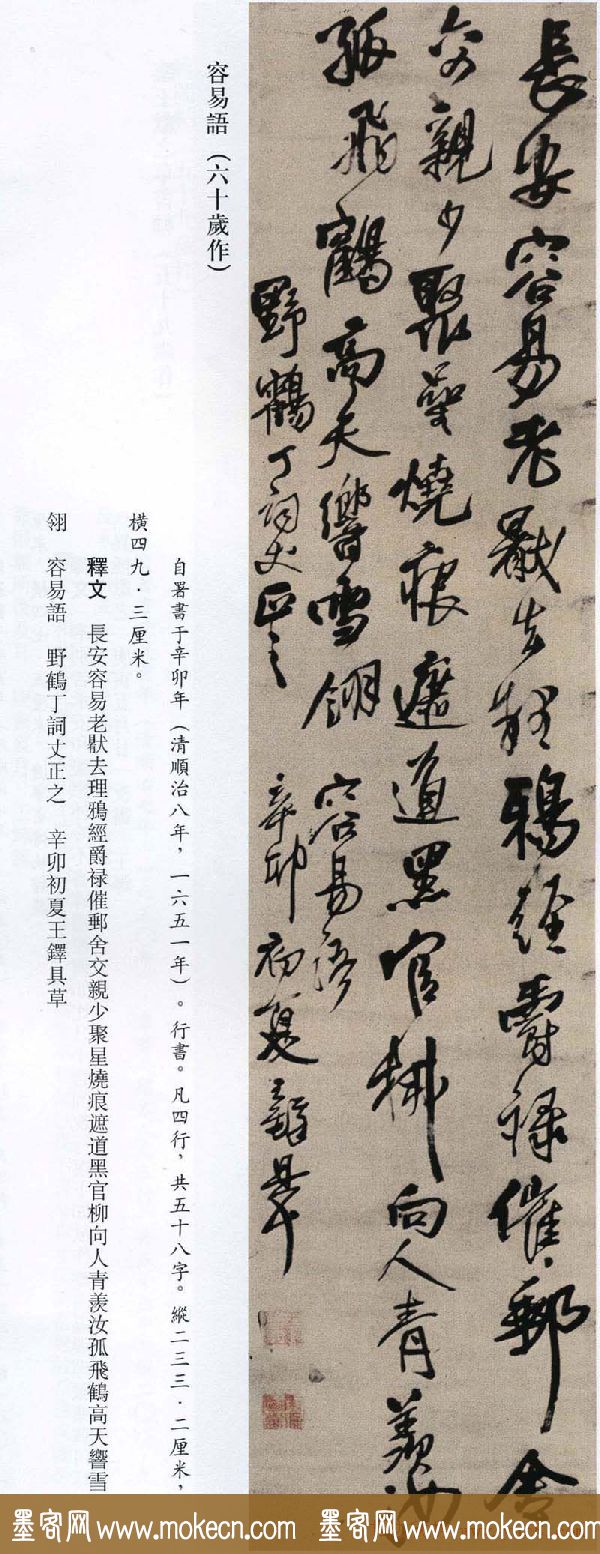 長安容易老猒去理鴉經爵禄催郵舍
交親少聚星燒痕遮道黑官柳向人青羨汝
孤飛鶴高天響雪翎 容易語
野鶴丁詞丈正之 辛卯初夏王鐸具草
容易語（六十歲作）
自署書于辛卯年（清順治八年，一六五一年）。行書。凡四行，共五十八字。縱二三三·二厘米，
橫四九·三厘米。
釋文 長安容易老猒去理鴉經爵禄催郵舍交親少聚星燒痕遮道黑官柳向人青羨汝孤飛鶴高天響雪
翎 容易語 野鶴丁詞丈正之 辛卯初夏王鐸具草
墨客网 www.mokecn.com 墨客网 www.mokecn.com